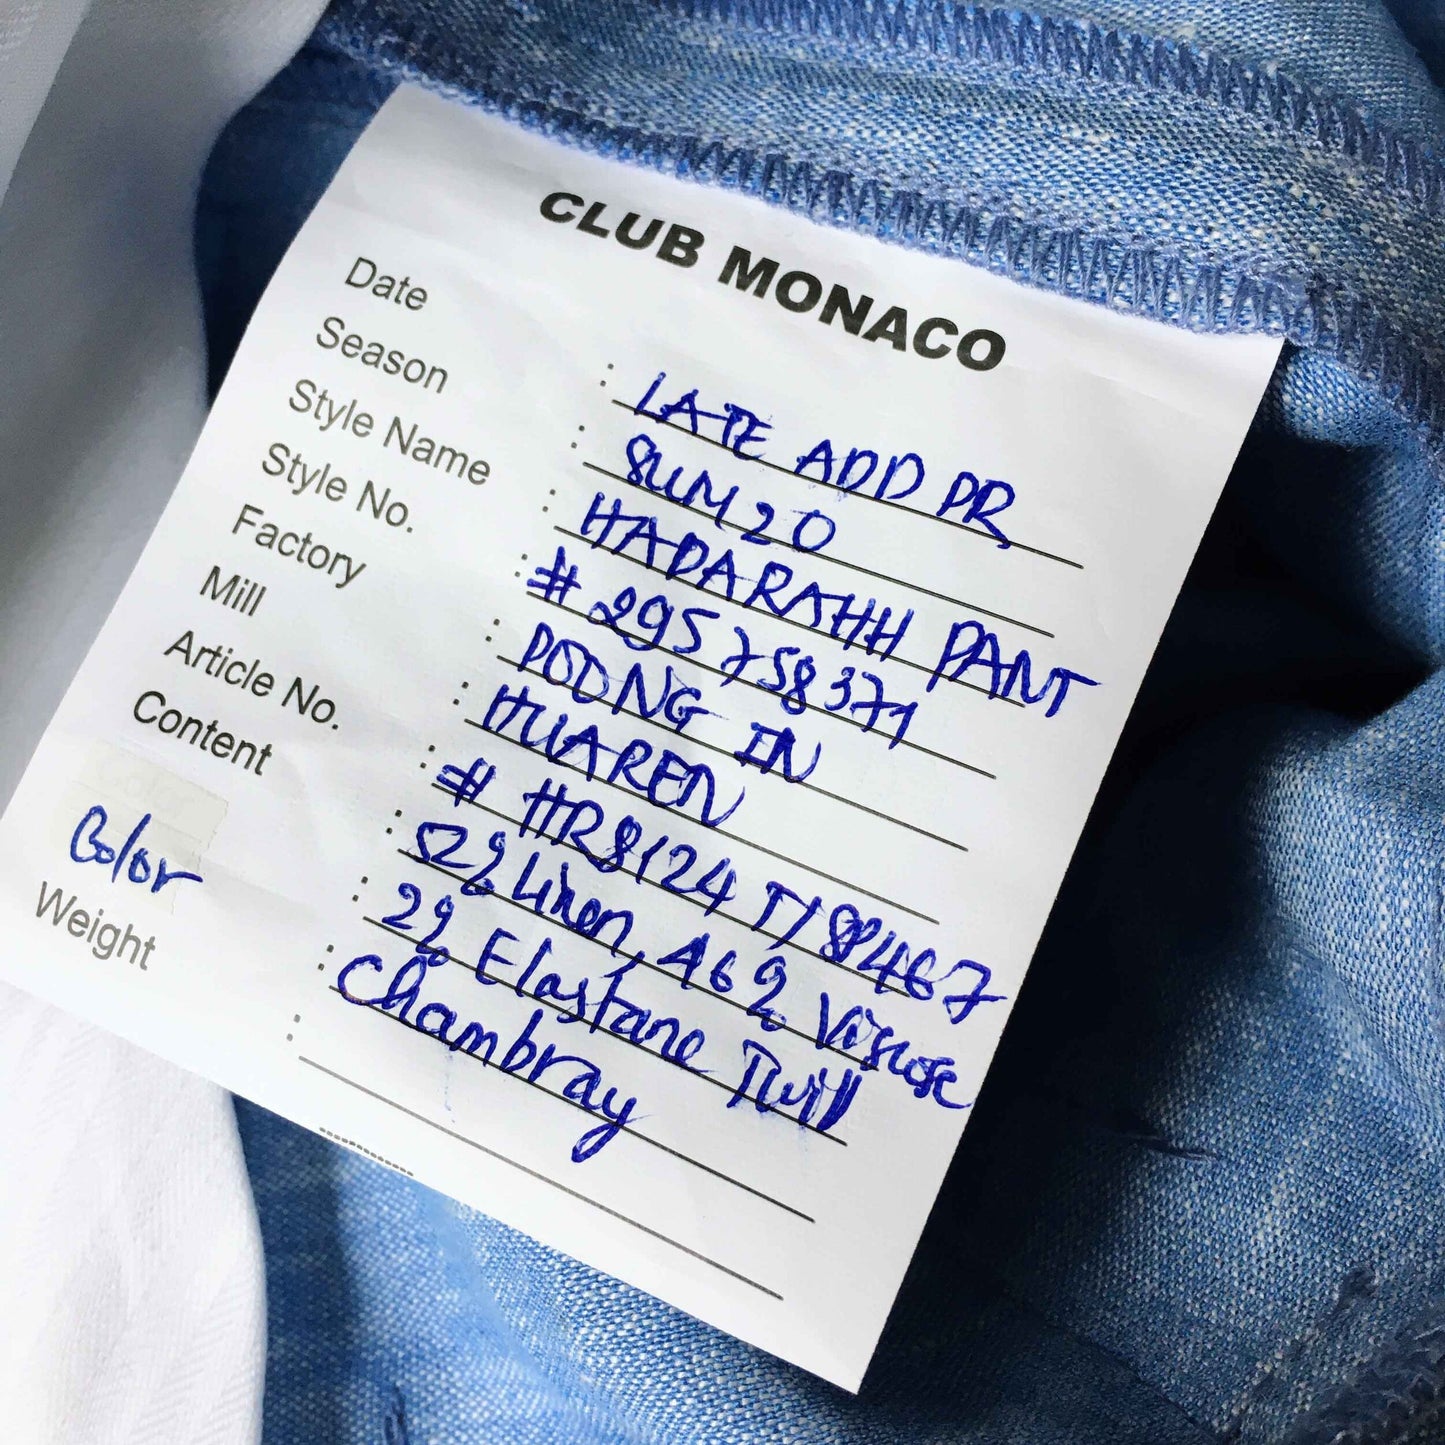 CLUB MONACO
Date : LATE ADD PR
Season : SUM 20
Style Name : HADARAHH PANT
Style No. : # 295758371
Factory : POONG IN
Mill : HUAREN
Article No. : # HR8124 T/88467
Content : 52% Linen, 46% Viscose
2% Elastane Twill
Color : Chambray
Weight :